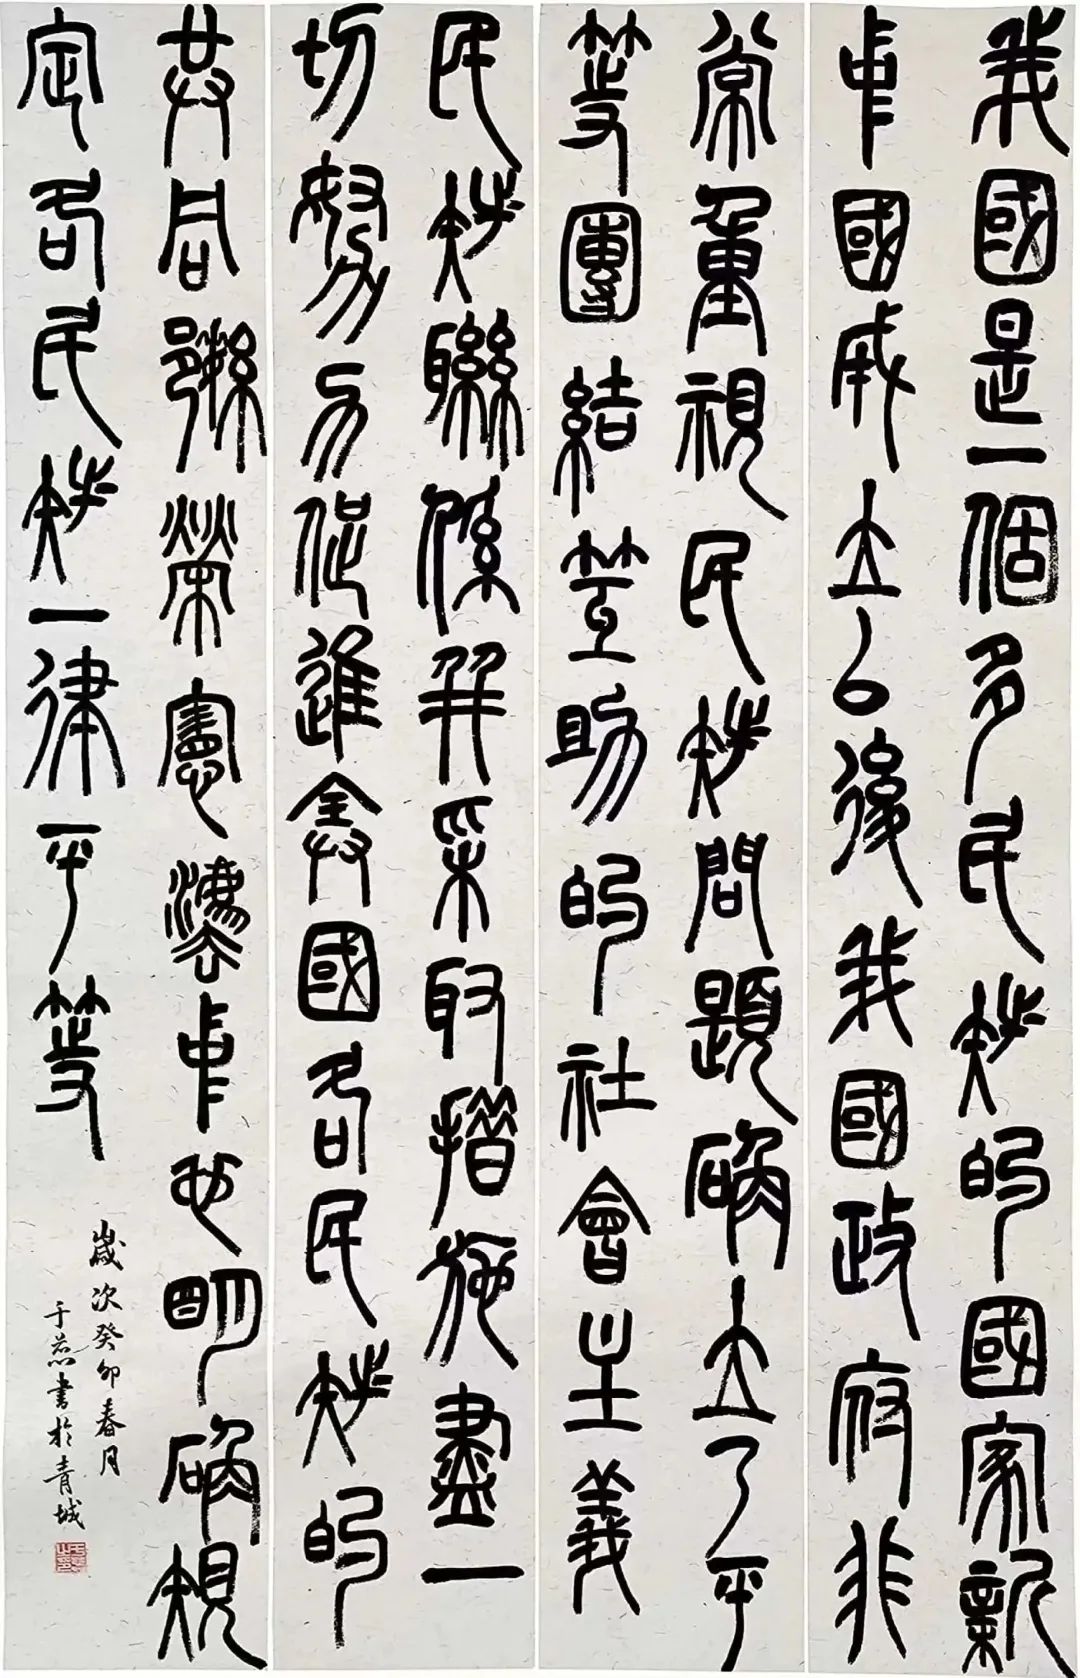 我國是一個多民族的國家新
中國成立以後我國政府非
常重視民族問題確立了平
等團結互助的社會主義
民族聯係并采取措施盡一
切努力促進全國各民族的
共同繁榮憲灋中也明確規
定各民族一律平等
歲次癸卯春月
于燕書於青城